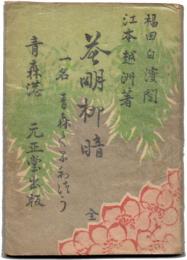 福田白濱閲
江本越洲著
花明柳暗
全
一名 青森くるわけう
青森港 元正堂出版